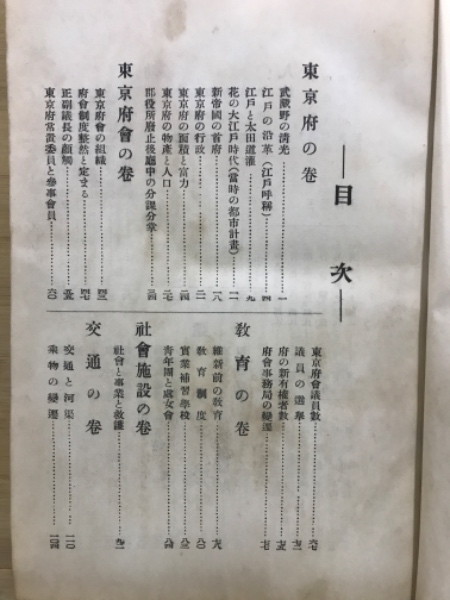 ―目次―
東京府の卷
武藏野の清光……一
江戸の沿革(江戸呼稱)……四
江戸と太田道灌……九
花の大江戸時代(當時の都市計畫)……一一
新帝國の首府……一八
東京府の行政……二一
東京府の面積と富力……二四
東京府の物產と人口……二七
郡役所廢止後廳中の分課分掌……三四
東京府會の卷
東京府會の組織……四三
府會制度整然と定まる……四七
正副議長の顔觸……五九
東京府常置委員と參事會員……六〇
東京府會議員數……六七
議員の選擧……七三
府の新有權者數……七五
府會事務局の變遷……七七
敎育の卷
維新前の敎育……七九
敎育制度……八〇
實業補習學校……八三
靑年團と處女會……八四
社會施設の卷
社會と事業と救護……九一
交通の卷
交通と河渠……一一〇
乘物の變遷……一一四